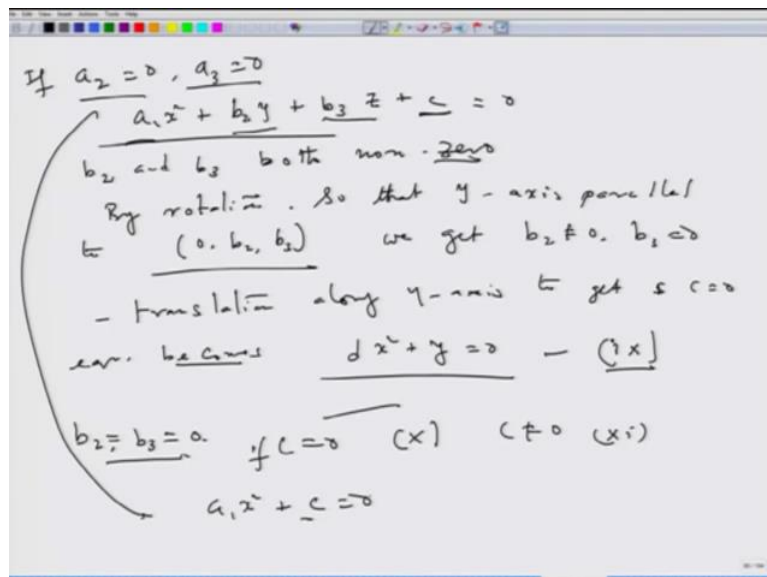 If a₂ = 0, a₃ = 0
a₁x² + b₂y + b₃z + c = 0
b₂ and b₃ both non-zero
By rotation. So that y-axis parallel
to (0, b₂, b₃) we get b₂ ≠ 0, b₃ = 0
- translation along y-axis to get c = 0
eqn. becomes dx² + y = 0 - (ix)
b₂ = b₃ = 0. if c = 0 (x) c ≠ 0 (xi)
a₁x² + c = 0